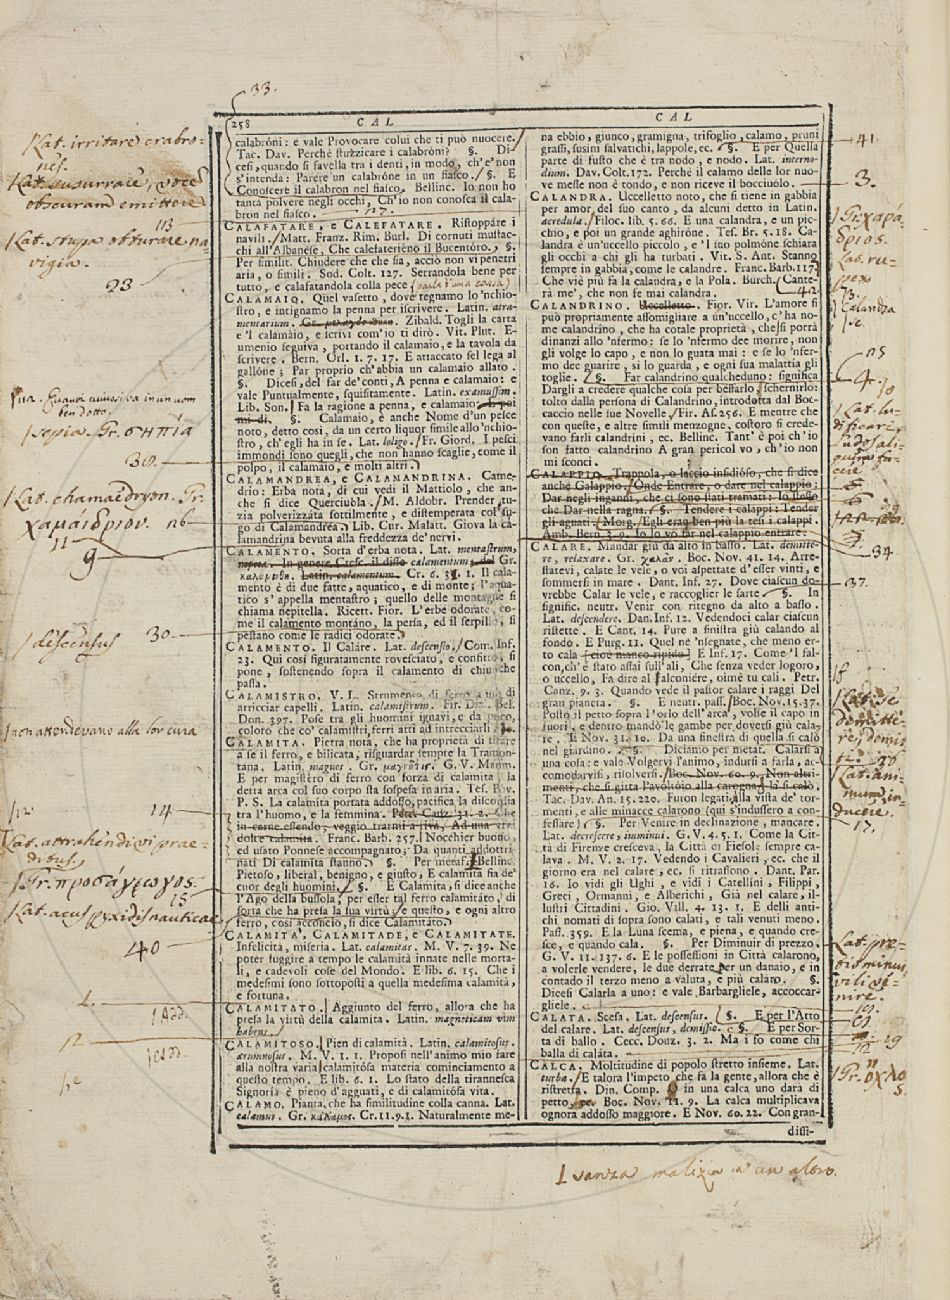 33.
258 CAL CAL
calabróni: e vale Provocare colui che ti può nuocere.
Tac. Dav. Perchè stuzzicare i calabróm? §. Di-
cesi, quando si favella tra i denti, in modo, ch'e' non
s'intenda: Parere un calabróne in un fiasco. §. E
Conoscere il calabron nel fiasco. Bellinc. Io non ho
tanta polvere negli occhi, Ch'io non conosca il cala-
bron nel fiasco.
CALAFATARE, e CALEFATARE. Ristoppáre i
navili. Matt. Franz. Rim. Burl. Di cornuti mustac-
chi all'Albanése. Che calefaterièno il Bucentóro. §.
Per similit. Chiudere che che sia, acciò non vi penetri
aria, o simili. Sod. Colt. 127. Serrandola bene per
tutto, e calafatandola colla pece
CALAMAIO. Quel vasetto, dove tegnamo lo 'nchio-
stro, e intignamo la penna per iscrivere. Latin. atra-
mentarium. Zibald. Togli la carta
e 'l calamáio, e scrivi com'io ti dirò. Vit. Plut. E-
umenio seguiva, portando il calamaio, e la tavola da
scrivere. Bern. Orl. 1. 7. 17. E attaccato sel lega al
gallóne; Par proprio ch'abbia un calamaio allato.
§. Dicesi, del far de' conti, A penna e calamaio: e
vale Puntualmente, squisitamente. Latin. examussim.
Lib. Son. Fa la ragione a penna, e calamaio
§. Calamaio, è anche Nome d'un pesce
noto, detto così, da un certo liquor simile allo 'nchio-
stro, ch'egli ha in se. Lat. loligo. Fr. Giord. I pesci
immondi sono quegli, che non hanno scaglie, come il
polpo, il calamaio, e molti altri.
CALAMANDREA, e CALAMANDRINA. Came-
drio: Erba nota, di cui vedi il Mattiolo, che an-
che si dice Querciuola. M. Aldobr. Prender tu-
zia polverizzata sottilmente, e distemperata col su-
go di Calamandréa. Lib. Cur. Malatt. Giova la ca-
lamandrina bevuta alla freddezza de' nervi.
CALAMENTO. Sorta d'erba nota. Lat. mentastrum,
nepeta. In genere Cresc. il disse calamentum; dal Gr.
Latin. calamentum. Cr. 6. 31. 1. Il cala-
mento è di due fatte, aquatico, e di monte; l'aqua-
tico s' appella mentastro; quello delle montagne si
chiama nepitella. Ricett. Fior. L'erbe odorate, co-
me il calamento montáno, la persa, ed il serpillo, si
pestano come le radici odorate.
CALAMENTO. Il Calare. Lat. descensio. Com. Inf.
23. Qui così figuratamente rovesciato, e confitto, si
pone, sostenendo sopra il calamento di chiunche
passa.
CALAMISTRO, V. L. Strumento di ferro a uso di
arricciar capelli. Latin. calamistrum. Fir. Dial. Bel.
Don. 397. Pose tra gli huomini ignavi, e da poco,
coloro che co' calamistri, ferri atti ad intrecciarli
CALAMITA. Pietra nota, che ha proprietà di tirare
a se il ferro, e bilicata, risguardar sempre la Tramon-
tana. Latin. magnes. Gr. μαγνῆτις. G. V. Maum.
E per magistéro di ferro con forza di calamita, la
detta arca col suo corpo sta sospesa in aria. Tes. Pov.
P. S. La calamita portata addosso, pacifica la discordia
tra l'huomo, e la femmina. Petr. Canz. 31. 2. Che
in carne essendo, veggio trarmi a riva, Ad una viva
dolce calamita. Franc. Barb. 257. Nocchier buono,
ed usato Ponesse accompagnato; Da quanti addottri-
nati Di calamita stanno. §. Per metaf. Bellinc.
Pietoso, liberal, benigno, e giusto, E calamita sia de'
cuor degli huomini. §. E Calamita, si dice anche
l'Ago della bussola, per esser tal ferro calamitáto, di
sorta che ha presa la sua virtù: e questo, e ogni altro
ferro, così acconcio, si dice Calamitáto.
CALAMITA', CALAMITADE, e CALAMITATE.
Infelicità, miseria. Lat. calamitas. M. V. 7. 39. Ne
poter fuggire a tempo le calamità innate nelle morta-
li, e cadevoli cose del Mondo. E lib. 6. 15. Che i
medesimi sono sottoposti a quella medesima calamità,
e fortuna.
CALAMITATO. Aggiunto del ferro, allora che ha
presa la virtù della calamita. Latin. magneticam vim
habens.
CALAMITOSO. Pien di calamità. Latin. calamitosus,
ærumnosus. M. V. 1. 1. Proposi nell'animo mio fare
alla nostra varia, calamitósa materia cominciamento a
questo tempo. E lib. 6. 1. Lo stato della tirannesca
Signoría è pieno d'agguati, e di calamitósa vita.
CALAMO. Pianta, che ha similitudine colla canna. Lat.
calamus. Gr. κάλαμος. Cr. 11. 9. 1. Naturalmente me-
na ebbio, giunco, gramigna, trifoglio, calamo, pruni
grassi, susini salvatichi, lappole, ec. §. E per Quella
parte di fusto che è tra nodo, e nodo. Lat. interno-
dium. Dav. Colt. 172. Perchè il calamo delle lor nuo-
ve messe non è tondo, e non riceve il bocciuólo.
CALANDRA. Uccelletto noto, che si tiene in gabbia
per amor del suo canto, da alcuni detto in Latin.
acredula. Filoc. lib. 5. 66. E una calandra, e un pic-
chio, e poi un grande aghiróne. Tes. Br. 5. 18. Ca-
landra è un'uccello piccolo, e 'l suo polmóne schiara
gli occhi a chi gli ha turbati. Vit. S. Ant. Stanno
sempre in gabbia, come le calandre. Franc. Barb. 117.
Che viè più fa la calandra, e la Pola. Burch. Cante-
rà me', che non fe mai calandra.
CALANDRINO. Uccellino. Fior. Vir. L'amore si
può propriamente assomigliare a un'uccello, c'ha no-
me calandrino, che ha cotale proprietà, chessi porrà
dinanzi allo 'nfermo: se lo 'nfermo dee morire, non
gli volge lo capo, e non lo guata mai: e se lo 'nfer-
mo dee guarire, si lo guarda, e ogni sua malattia gli
toglie. §. Far calandrino qualcheduno: significa
Dargli a credere qualche cosa per beffarlo, schernirlo:
tolto dalla persona di Calandrino, introdotta dal Boc-
caccio nelle sue Novelle. Fir. As. 256. E mentre che
con queste, e altre simili menzogne, costoro si crede-
vano farsi calandrini, ec. Bellinc. Tant' è poi ch'io
son fatto calandrino A gran pericol vo, ch'io non
mi sconci.
CALAPPIO. Trappola, o laccio insidióso, che si dice
anche Galappio. Onde Entrare, o dare nel calappio:
Dar negli inganni, che ci sono stati tramati: Lo stesso
che Dar nella ragna. §. Tendere i calappi: Tender
gli aguati. Morg. Egli eran ben più la tesi i calappi.
Amb. Bern. 3. 9. Io lo vo far nel calappio entrare.
CALARE. Mandar giù da alto in basso. Lat. demitte-
re, relaxare. Gr. χαλᾶν. Boc. Nov. 41. 14. Arre-
stattevi, calate le vele, o voi aspettate d'esser vinti, e
sommersi in mare. Dant. Inf. 27. Dove ciascun do-
vrebbe Calar le vele, e raccoglier le sarte. §. In
signific. neutr. Venir con ritegno da alto a basso.
Lat. descendere. Dan. Inf. 12. Vedendoci calar ciascun
ristette. E Cant. 14. Pure a sinistra giù calando al
fondo. E Purg. 11. Quel ne 'nsegnate, che meno er-
to cala [cioè manco ripido] E Inf. 17. Come 'l fal-
con, ch'è stato assai sull'ali, Che senza veder logoro,
o uccello, Fa dire al falconiére, oimè tu cali. Petr.
Canz. 9. 3. Quando vede il pastor calare i raggi Del
gran pianeta. §. E neutr. pass. Boc. Nov. 15. 37.
Posto il petto sopra l'orlo dell'arca, volse il capo in
fuori, e dentro mandò le gambe per doversi giù cala-
re. E Nov. 31. 10. Da una finestra di quella si calò
nel giardino. §. Diciamo per metaf. Calarsi a
una cosa: e vale Volgervi l'animo, indursi a farla, ac-
comodarvisi, risolversi. Boc. Nov. 60. 9. Non altri-
menti, che si gitta l'avoltóio alla carogna, la si calò.
Tac. Dav. An. 15. 220. Furon legati, alla vista de' tor-
menti, e alle minacce calarono [qui s'indussero a con-
fessare] §. Per Venire in declinazione, mancare.
Lat. decrescere, imminui. G. V. 4. 5. 1. Come la Cit-
tà di Firenze cresceva, la Città di Fiesole sempre ca-
lava. M. V. 2. 17. Vedendo i Cavalieri, ec. che il
giorno era nel calare, ec. si ritrassono. Dant. Par.
16. Io vidi gli Ughi, e vidi i Catellini, Filippi,
Greci, Ormanni, e Alberichi, Già nel calare, il-
lustri Cittadini. Gio. Vill. 4. 13. 1. E delli anti-
chi nomati di sopra sono calati, e tali venuti meno.
Pass. 359. E la Luna scema, e piena, e quando cre-
sce, e quando cala. §. Per Diminuir di prezzo.
G. V. 11. 137. 6. E le possessioni in Città calarono,
a volerle vendere, le due derrate per un danaio, e in
contado il terzo meno a valuta, e più caláro. §.
Dicesi Calarla a uno: e vale Barbargliele, accoccar-
gliele.
CALATA. Scesa. Lat. descensus. §. E per l'Atto
del calare. Lat. descensus, demissio. §. E per Sor-
ta di ballo. Cecc. Donz. 3. 2. Ma i fo come chi
balla di caláta.
CALCA. Moltitudine di popolo stretto insieme. Lat.
turba. E talora l'impeto che fa la gente, allora che è
ristretta. Din. Comp. in una calca uno darà di
petto Boc. Nov. 11. 9. La calca multiplicava
ognora addosso maggiore. E Nov. 60. 22. Con gran-
dissi-
Lat. irritare crabro-
nes.
Lat. susurrare, voce
obscuram emittere
Lat. stupa obturare na-
vigia.
23
sepia. Gr. σηπία
30.
Lat. chamaedryon. Gr.
χαμαίδριον.
11
9
descensus 30
non attendevano alla lor cura
14
Lat. attrahendi vi prae-
ditus
Gr. προσάγωγος.
15
Lat. acus pyxidis nauticae
40
41.
3.
Calandra
4.
34
37.
Lat. se
demitte-
re,
Lat. ani-
mum in-
ducere.
17.
Lat. pre-
tio minus
vili ve-
nire.
29
Gr. ὄχλο
ς
senza malizia a un altro.